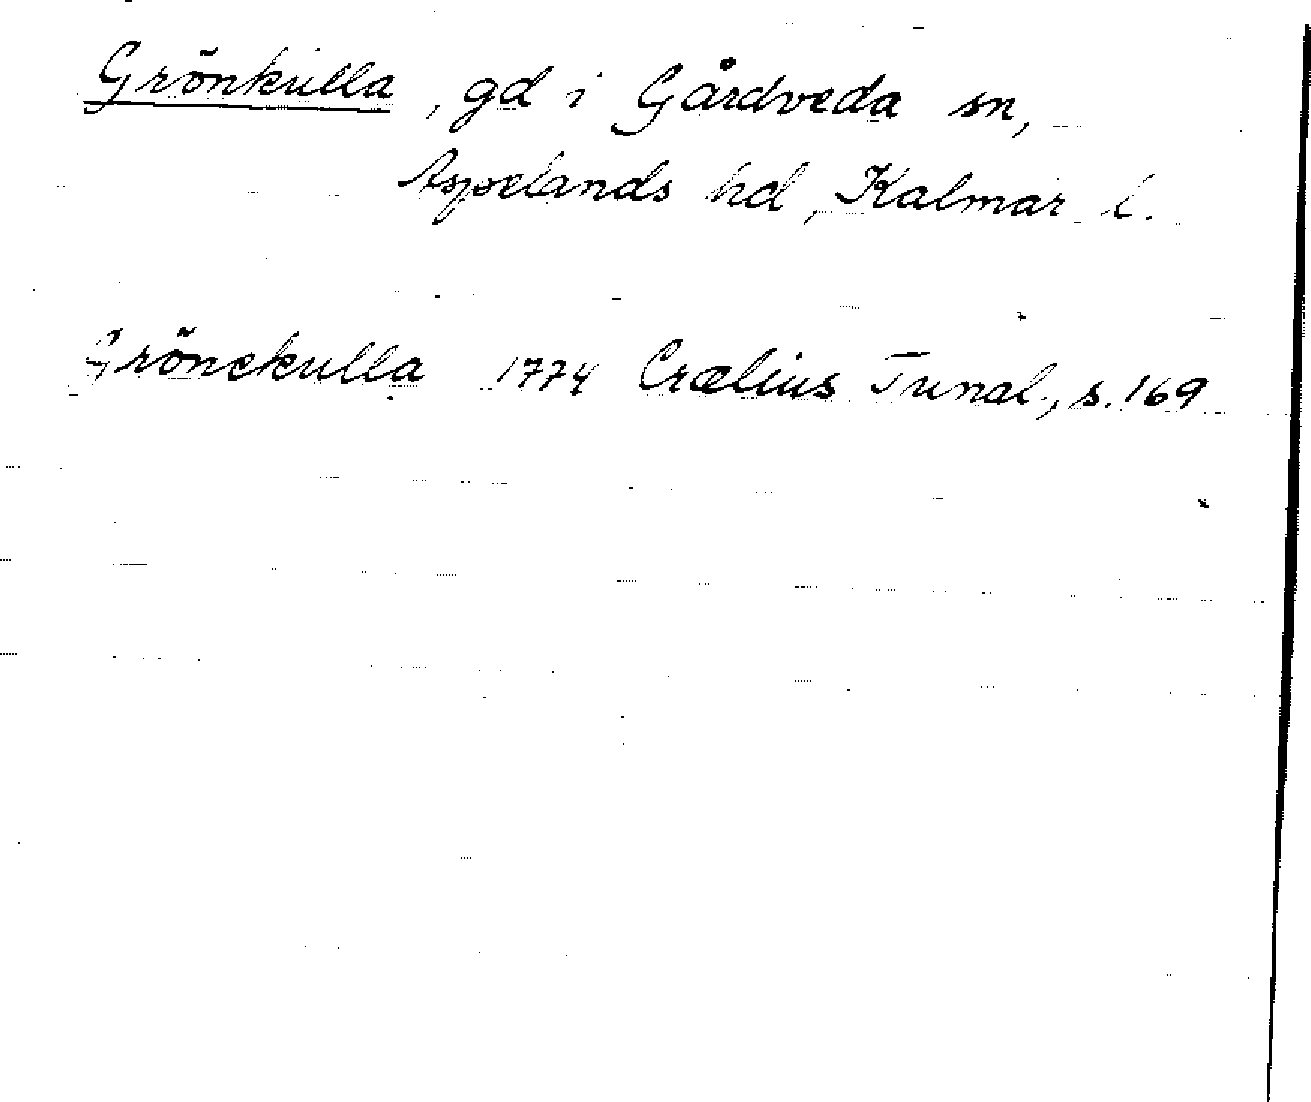 Grönkulla, gd i Gårdveda sn,
Aspelands hd, Kalmar l.
Grönekulla 1774 Crælius Tunal, s. 169